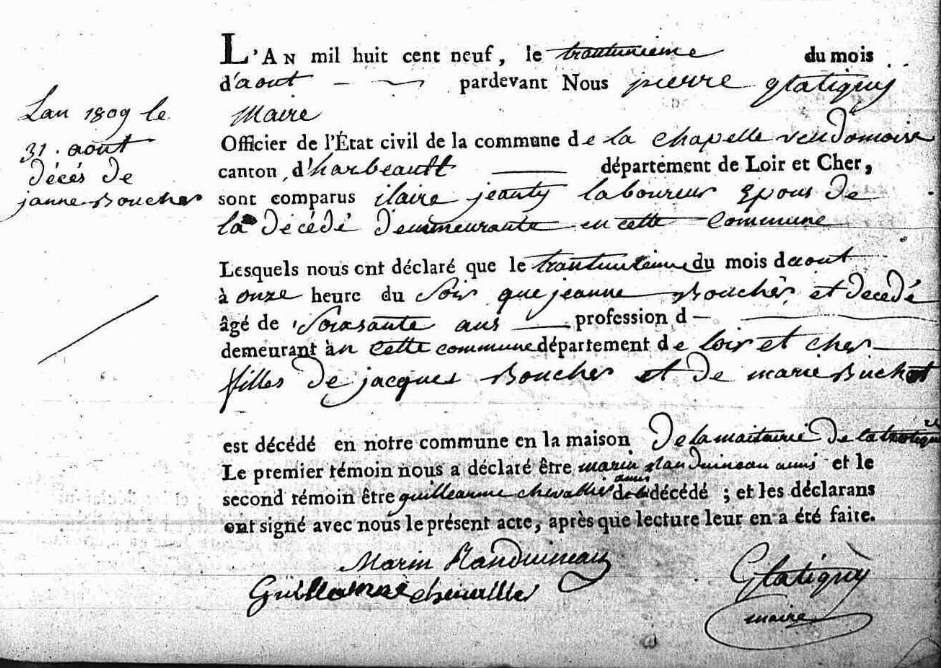 L'AN mil huit cent neuf, le trantunieme du mois
d'aout pardevant Nous pierre glatigny
maire
Officier de l'État civil de la commune de la chapelle vendomoise
canton d'harbeault département de Loir et Cher,
sont comparus ilaire jeanty laboureur Epous de
la décédé demmeurante en cette commune
Lesquels nous ont déclaré que le trantunieme du mois daout
à onze heure du soir que jeanne Boucher et decedé
âgé de soisante ans profession d
demeurant àn cette commune département de loir et cher
filles de jacques Boucher et de marie Buchet
est décédé en notre commune en la maison De la maitairié de la
Le premier témoin nous a déclaré être marin randuineau amis et le
second témoin être guilleaume chevallier amis de la décédé ; et les déclarans
ont signé avec nous le présent acte, après que lecture leur en a été faite.
Marin Randuineau
Guilleaume chevallier
Glatigny
maire
Lan 1809 le
31. aout
décés de
janne Boucher